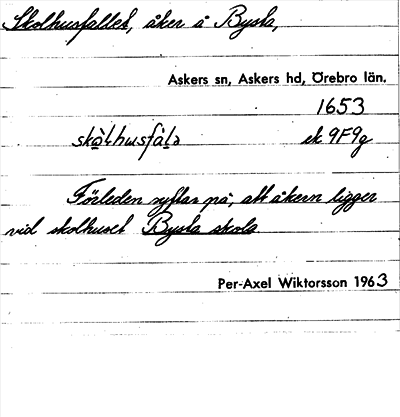 Skolhusfallet, åker å Bysta,
Askers sn, Askers hd, Örebro län.
1653
skò̀lhusfàlə ek 9F9g
Förleden syftar på, att åkern ligger
vid skolhuset Bysta skola
Per-Axel Wiktorsson 1963